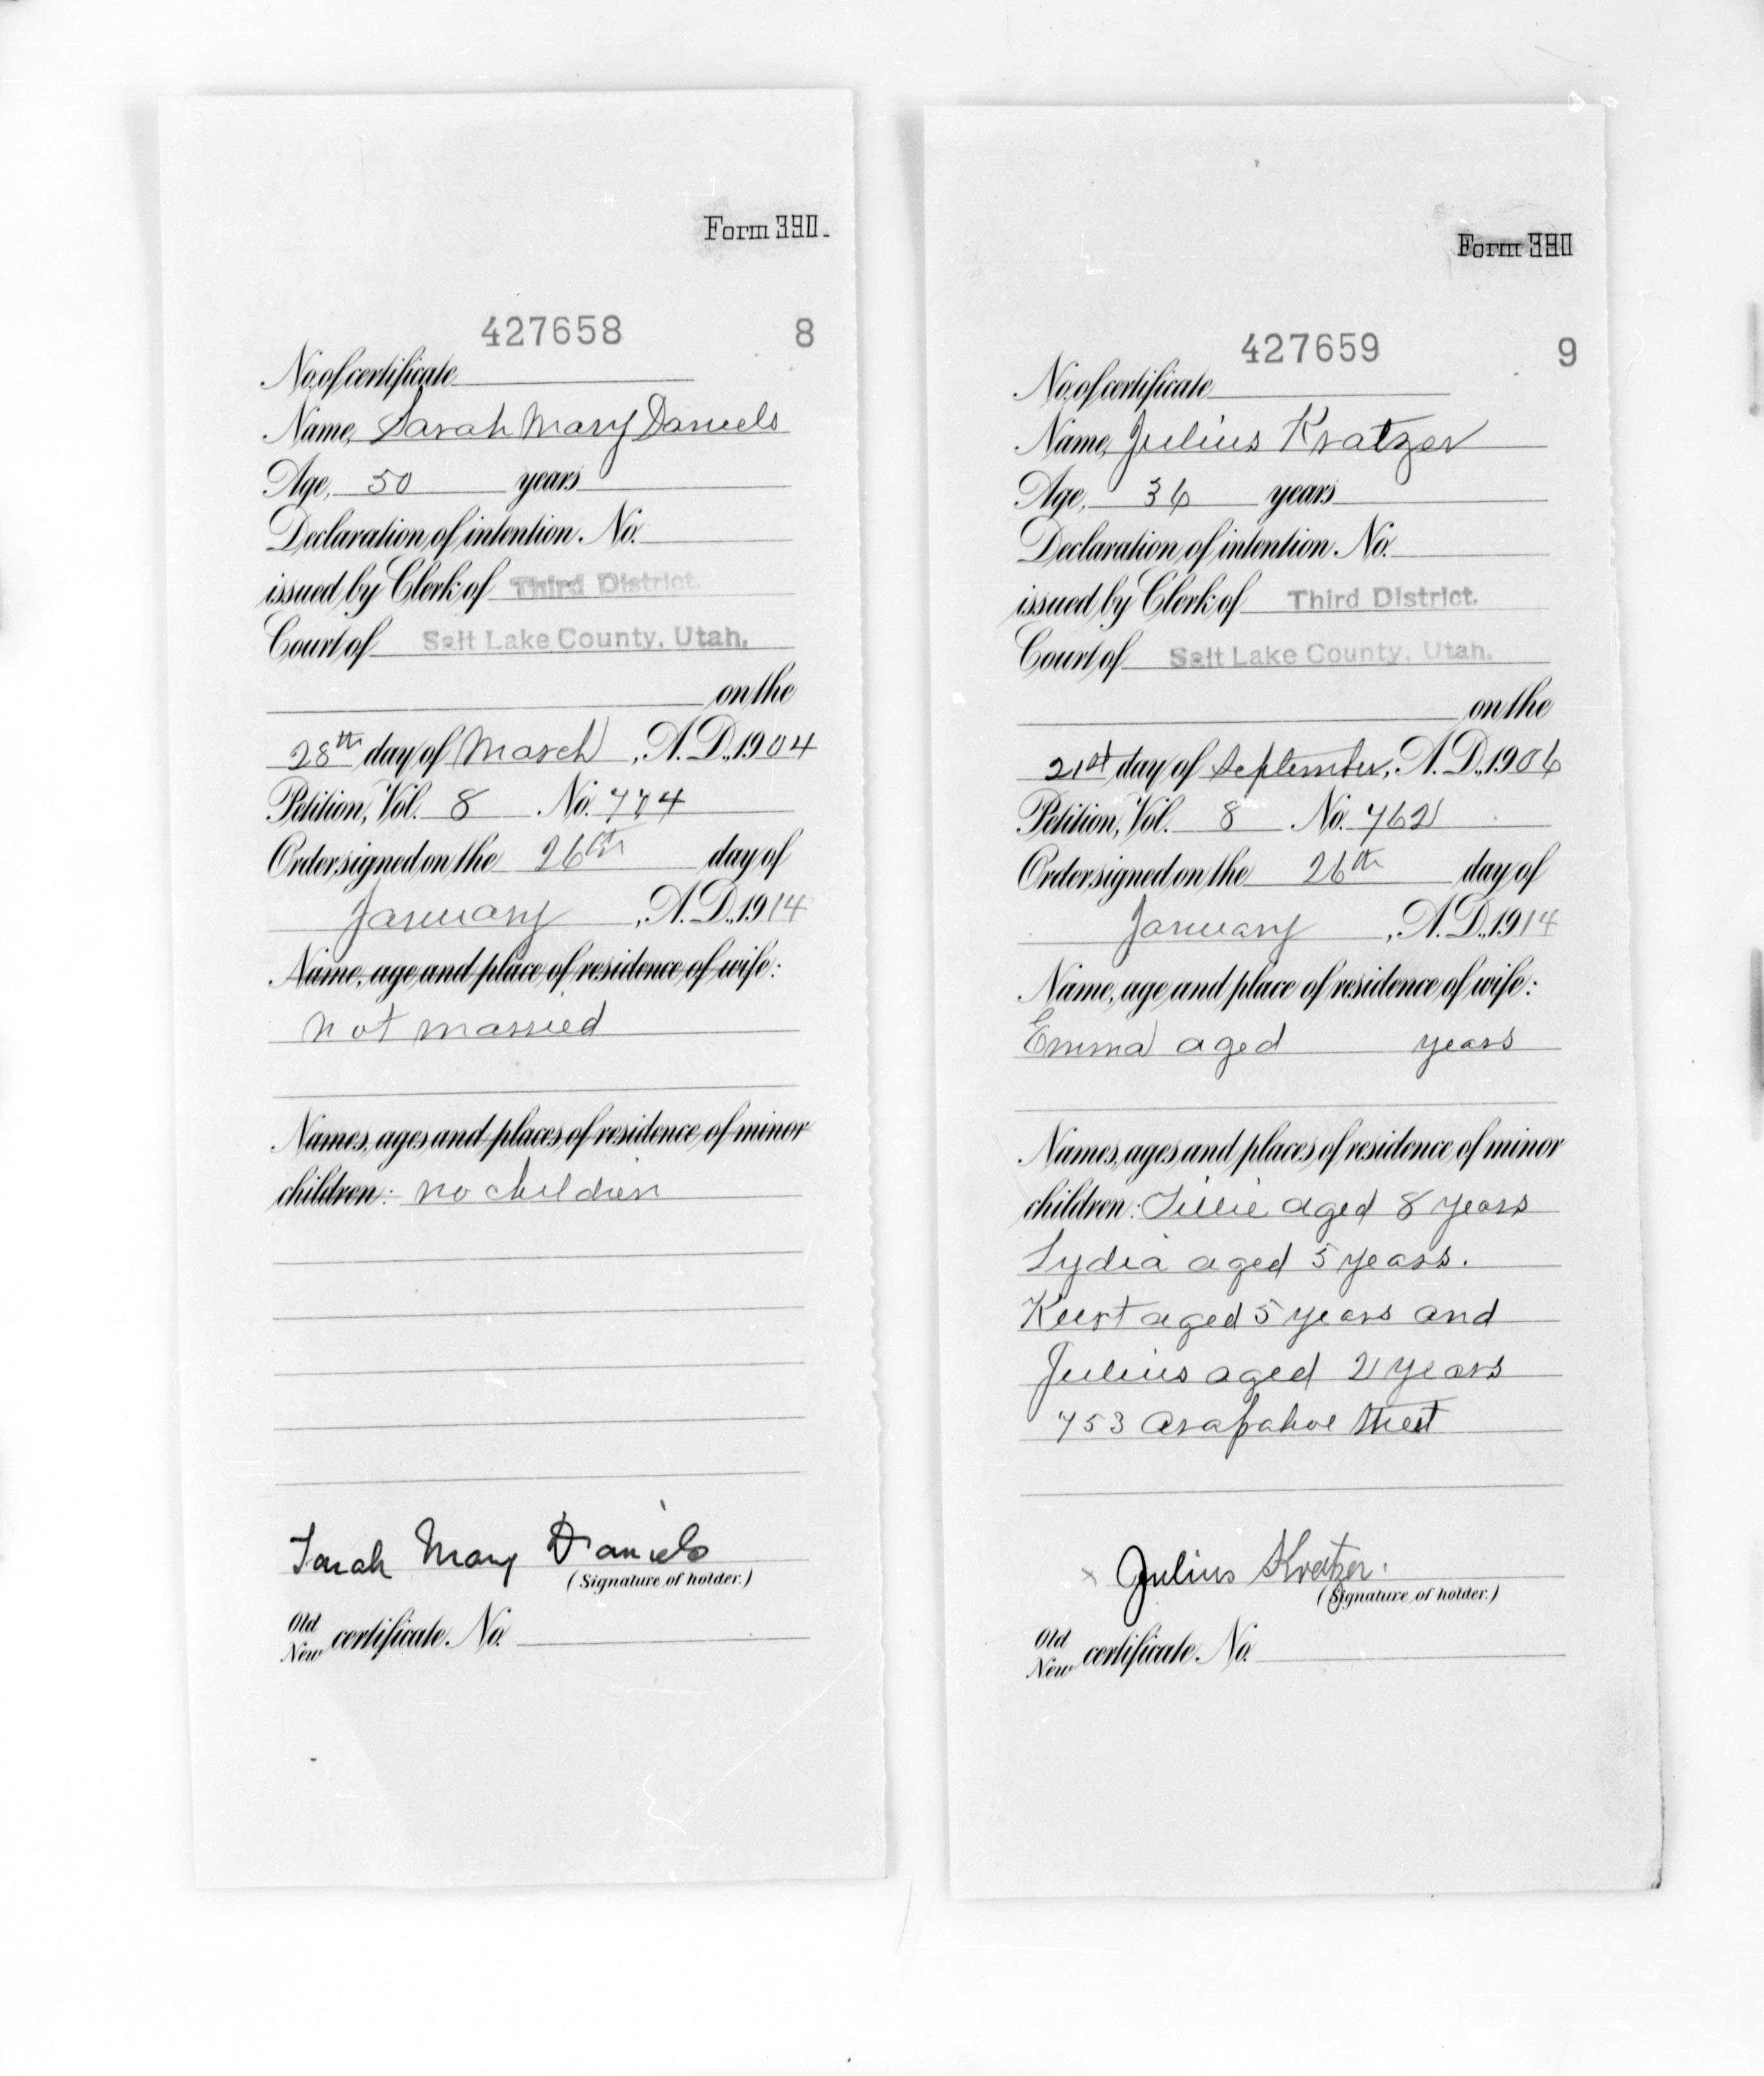 Form 330.
427658 8
No. of certificate
Name, Sarah Mary Daniels
Age, 50 years
Declaration of intention No.
issued by Clerk of Third District.
Court of Salt Lake County, Utah.
on the
28th day of March, A.D., 1904
Petition, Vol. 8 No. 774
Order signed on the 26th day of
January, A.D., 1914
Name, age and place of residence of wife:
not married
Names, ages and places of residence of minor
children: no children
Sarah Mary Daniels
(Signature of holder.)
Old
New certificate No.
Form 330
427659 9
No. of certificate
Name, Julius Kratzer
Age, 36 years
Declaration of intention No.
issued by Clerk of Third District.
Court of Salt Lake County, Utah.
on the
21st day of September, A.D., 1906
Petition, Vol. 8 No. 762
Order signed on the 26th day of
January, A.D., 1914
Name, age and place of residence of wife:
Emma aged years
Names, ages and places of residence of minor
children: Tillie aged 8 years
Lydia aged 5 years.
Kurt aged 5 years and
Julius aged 2 years
753 Arapahoe Street
x Julius Kratzer.
(Signature of holder.)
Old
New certificate No.